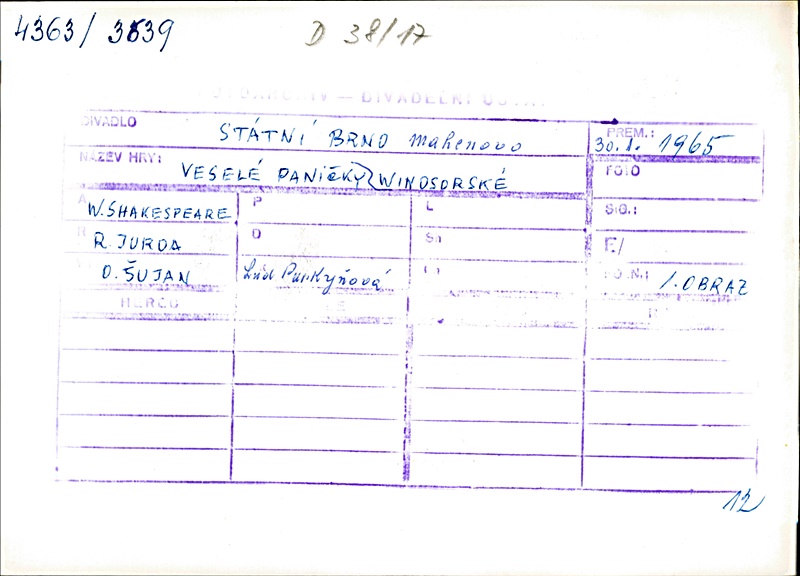 4363/ 3639
D 38/17
FOTOARCHIV — DIVADELNÍ ÚSTAV
DIVADLO STÁTNÍ BRNO Mahenovo PREM.: 30.1. 1965
NÁZEV HRY: VESELÉ PANIČKY WINDSORSKÉ FOTO
A W. SHAKESPEARE P L SIG.:
R R. JURDA D Sn F/
O. ŠUJAN Lid Purkyňová PO.N.: 1. OBRAZ
HERCŮ
12